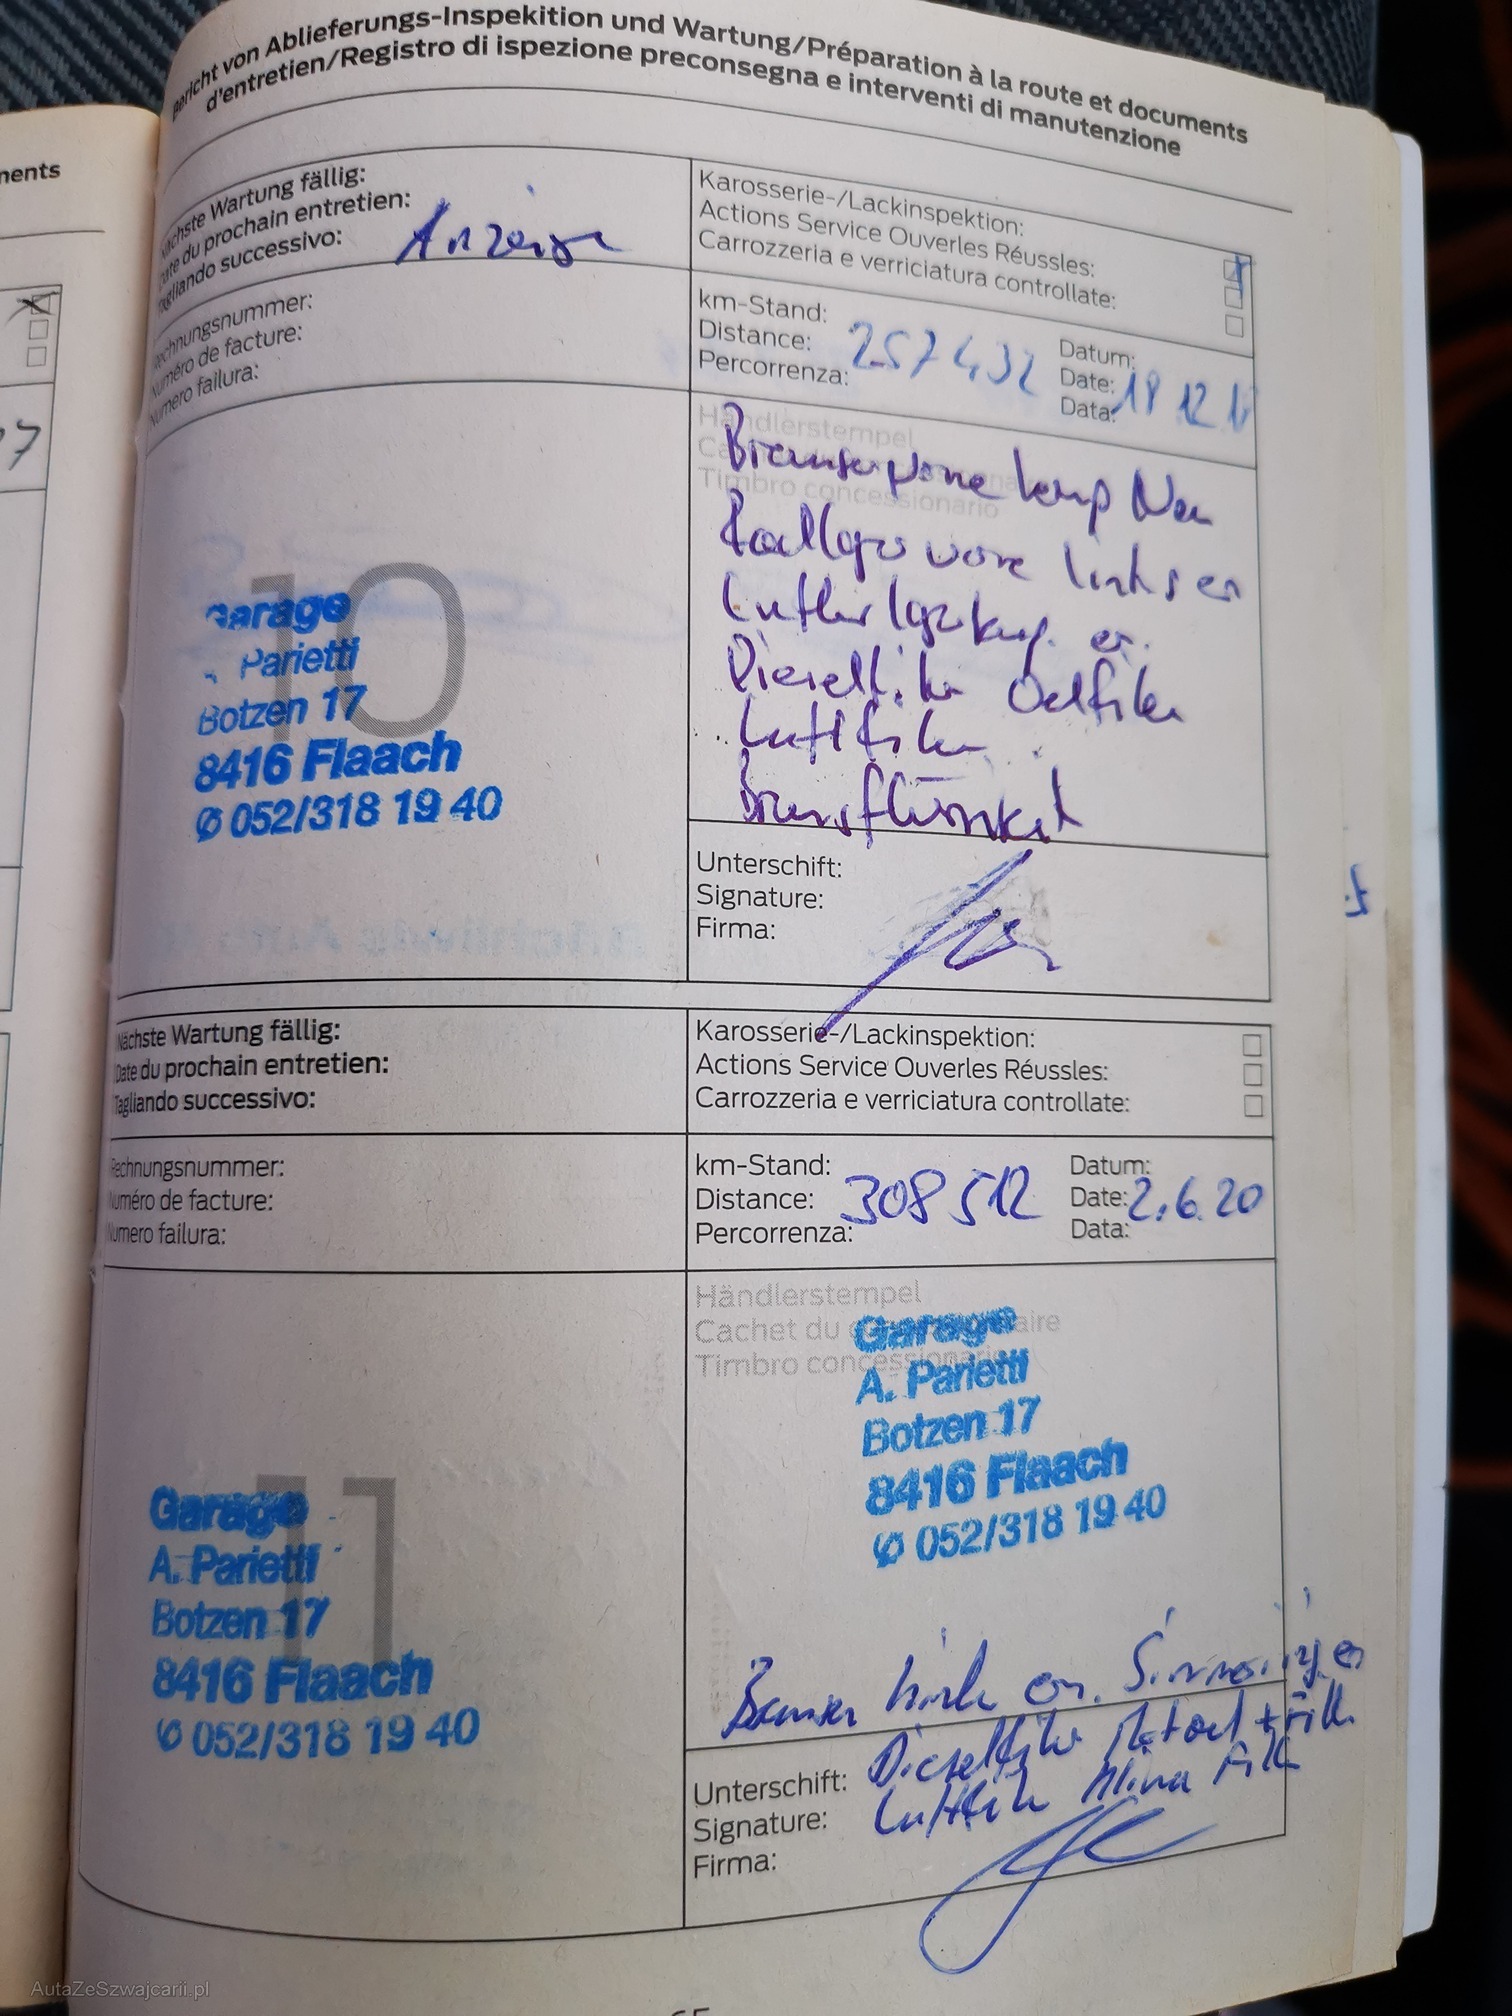 Bericht von Ablieferungs-Inspekition und Wartung/Préparation à la route et documents
d'entretien/Registro di ispezione preconsegna e interventi di manutenzione
ments
Nächste Wartung fällig:
Date du prochain entretien:
Tagliando successivo:
Anzeige
Karosserie-/Lackinspektion:
Actions Service Ouverles Réussles:
Carrozzeria e verriciatura controllate:
Rechnungsnummer:
Numéro de facture:
Numero failura:
km-Stand:
Distance:
Percorrenza:
257432
Datum:
Date:
Data:
18 12
7
Händlerstempel
Timbro concessionario
Radlager vorne links er
Dieselfilter Oelfilter
Luftfilter
Bremsflüssigkeit
10
Garage
Parietti
Botzen 17
8416 Flaach
✆ 052/318 19 40
Unterschift:
Signature:
Firma:
Nächste Wartung fällig:
Date du prochain entretien:
Tagliando successivo:
Karosserie-/Lackinspektion:
Actions Service Ouverles Réussles:
Carrozzeria e verriciatura controllate:
Rechnungsnummer:
Numéro de facture:
Numero failura:
km-Stand:
Distance:
Percorrenza:
308512
Datum:
Date:
Data:
2.6.20
Händlerstempel
Cachet du
Timbro concessionario
Garage
A. Parietti
Botzen 17
8416 Flaach
✆ 052/318 19 40
11
Garage
A. Parietti
Botzen 17
8416 Flaach
✆ 052/318 19 40
Bremsen hinten er.
Dieselfilter Motoel + Filter
Luftfilter Klima Filter
Unterschift:
Signature:
Firma:
65
AutaZeSzwajcarii.pl